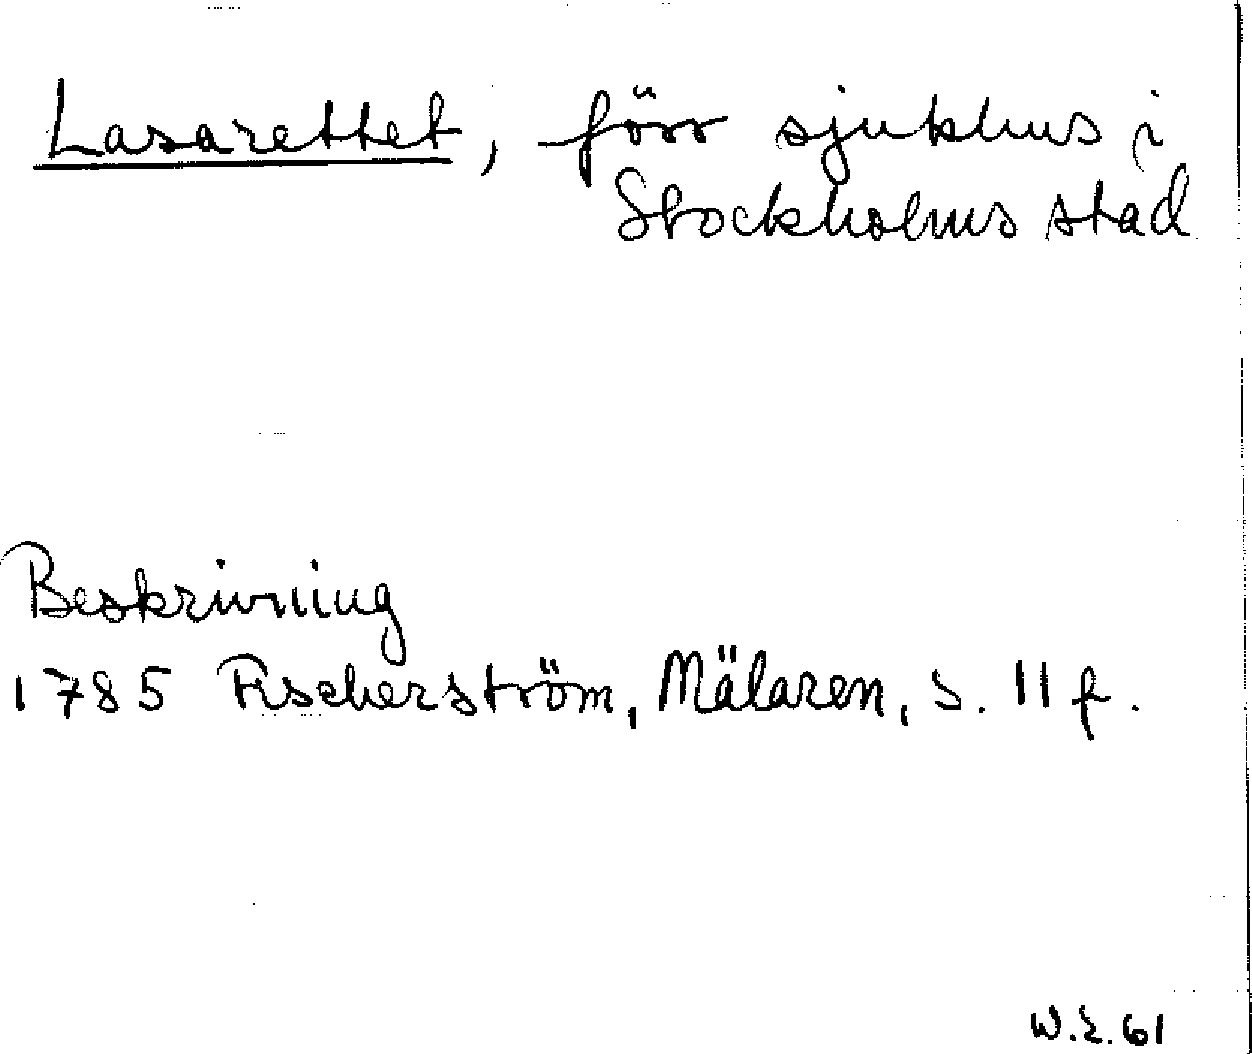 Lasarettet, förr sjukhus i
Stockholms stad
Beskrivning
1785 Fischerström, Mälaren, s. 11 f.
W.E. 61